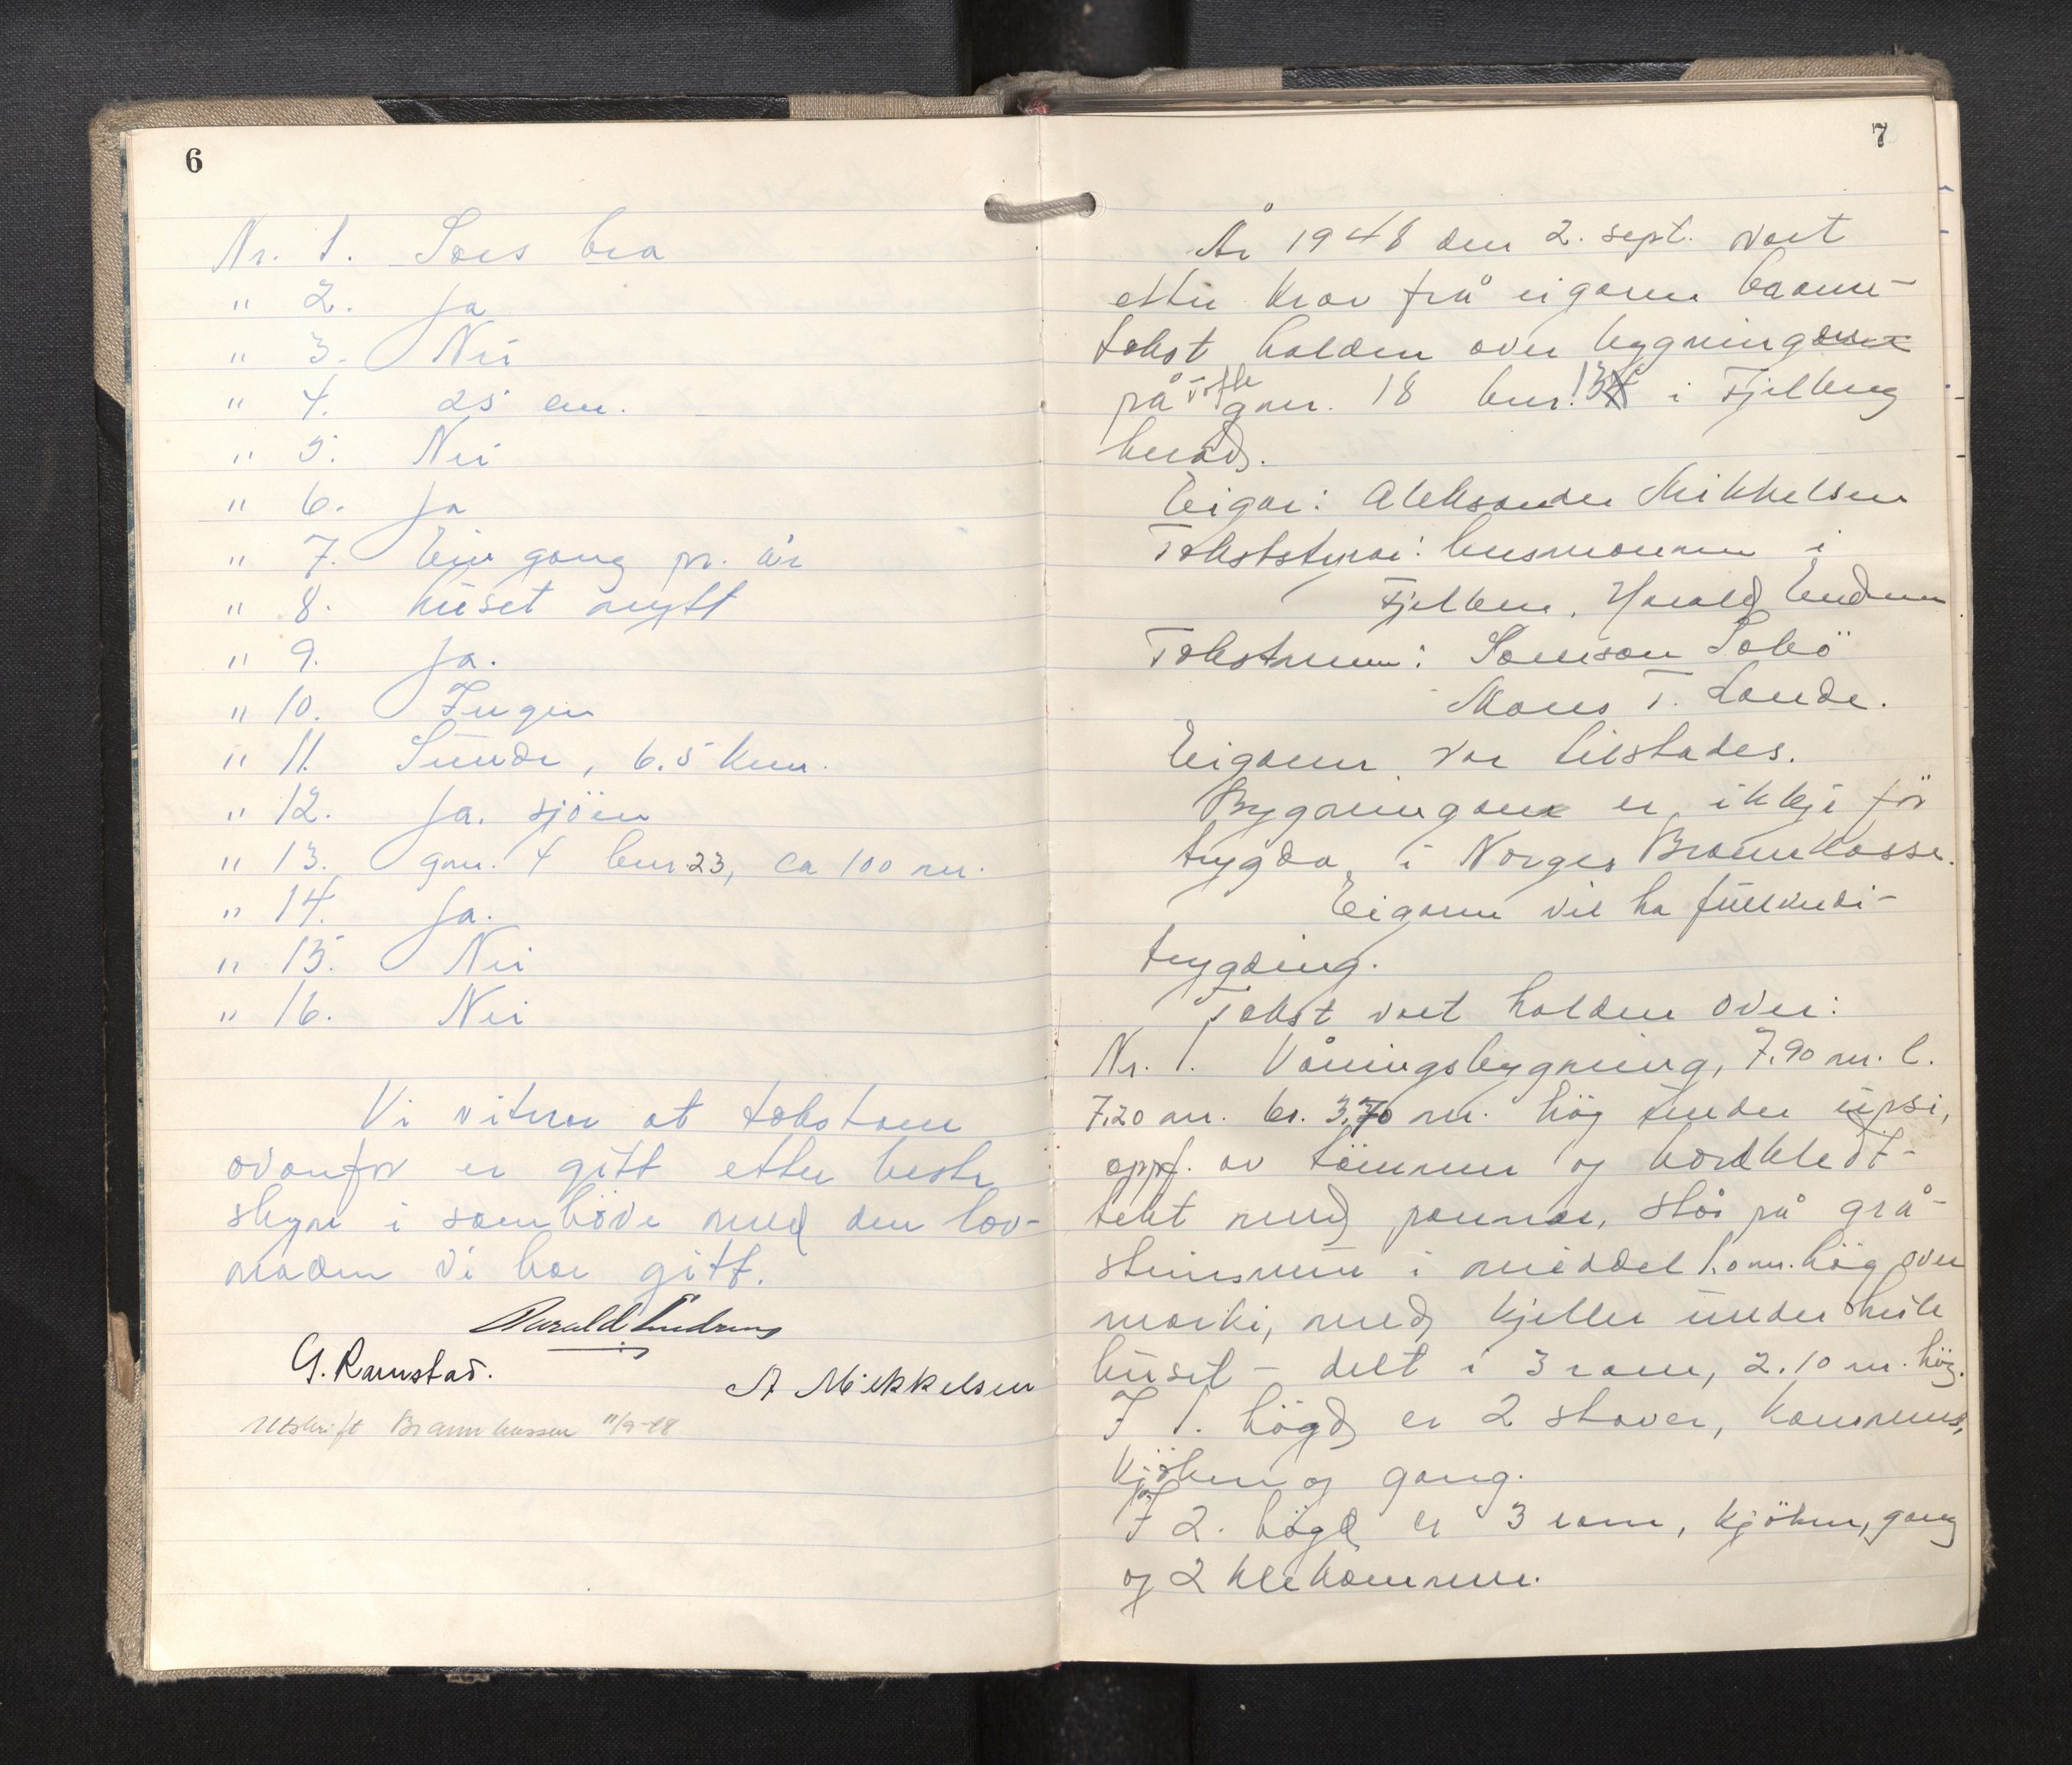 6
Nr. 1. Sers bra
" 2. Ja
" 3. Nei
" 4. 25 cm.
" 5. Nei
" 6. Ja
" 7. Ein gang pr. år
" 8. Huset nytt
" 9. Ja.
" 10. Ingen
" 11. Sunde, 6.5 km.
" 12. Ja. sjöen
" 13. gnr. 4 bnr. 23, ca 100 m.
" 14. Ja.
" 15. Nei
" 16. Nei
Vi vitnar at takstane
ovanfor er gitt etter beste
skyn i samhöve med den lov-
naden vi har gitt.
Harald Endresen
G. Ramstad.
A Mikkelsen
Utskrift Brannkassen 11/9-48
7
År 1948 den 2. sept. vart
etter krav frå eigaren brann-
takst halden over bygningane
på Tofte gnr. 18 bnr. 13 i Fjelberg
herad.
Eigar: Aleksander Mikkelsen
Takststyrar: lensmannen i
Fjelberg, Harald Endresen
Takstmenn: Samson Sebö
Mons T. Sande.
Eigaren var tilstades.
Bygningane er ikkje för
trygda i Norges Brannkasse.
Eigaren vil ha fullverdi-
trygding.
Takst vart halden over:
Nr. 1. Våningsbygning, 7.90 m. l.
7,20 m. br. 3,70 m. hög under upsi,
oppf. av tömmer og bordkledt-
tekt med pannar, står på grå-
steinsmur i middel 1.0 m. hög over
marki, med kjeller under heile
huset - delt i 3 rom, 2.10 m. hög.
I 1. högd er 2 stover, kammers,
kjöken og gang.
I 2. högd er 3 rom, kjöken, gang
og 2 klekammer.